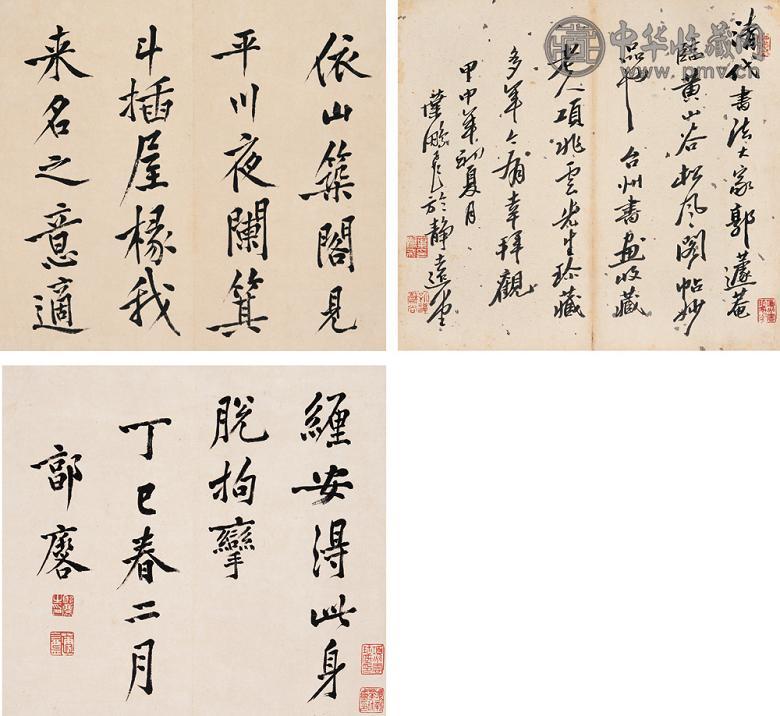 依山築閣見
平川夜闌箕
斗插屋椽我
来名之意適
中华收藏网
www.pmv.cn
清代書法大家郭蘧菴
臨黄山谷松风閣帖妙
品也 台州書畫收藏
老人項兆雲先生珍藏
多年今有幸拜觀
甲申年初夏月
葉鵬飛於静遠堂
纏安得此身
脱拘攣
丁巳春二月
郭麐